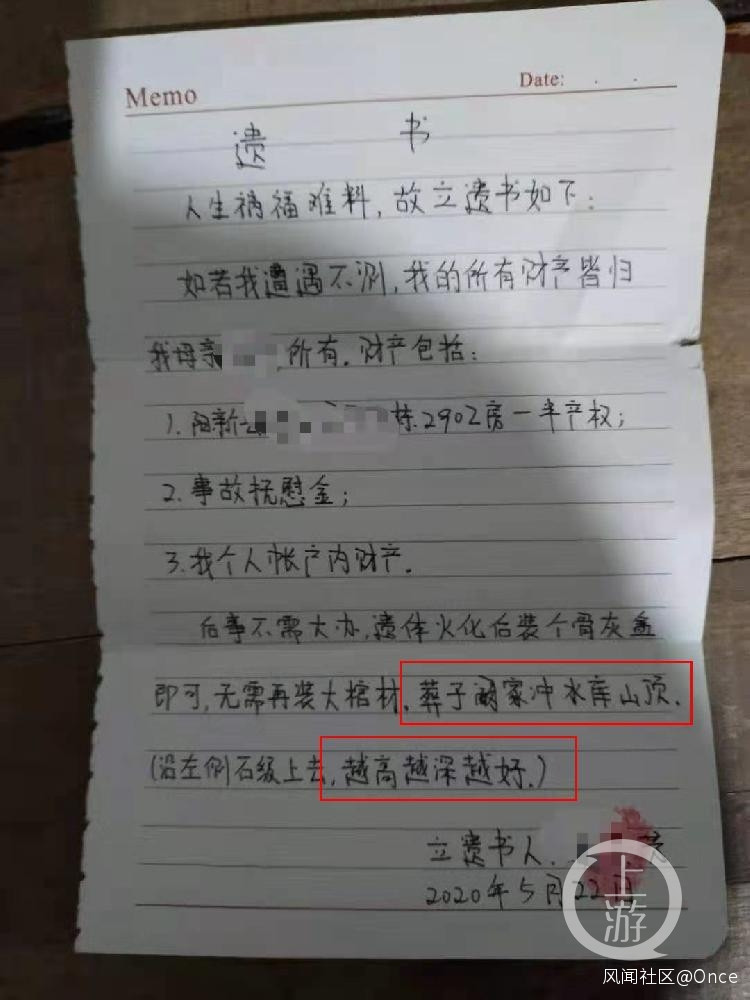 Memo
Date:
遗 书
人生祸福难料,故立遗书如下:
如若我遭遇不测,我的所有财产皆归
我母亲 所有.财产包括:
1.阳新 栋2902房一半产权;
2.事故抚慰金;
3.我个人帐户内财产.
后事不需大办,遗体火化后装个骨灰盒
即可,无需再装大棺材.葬于阚家冲水库山顶.
(沿左侧石级上去,越高越深越好.)
立遗书人.
2020年5月22日
上游
风闻社区@Once